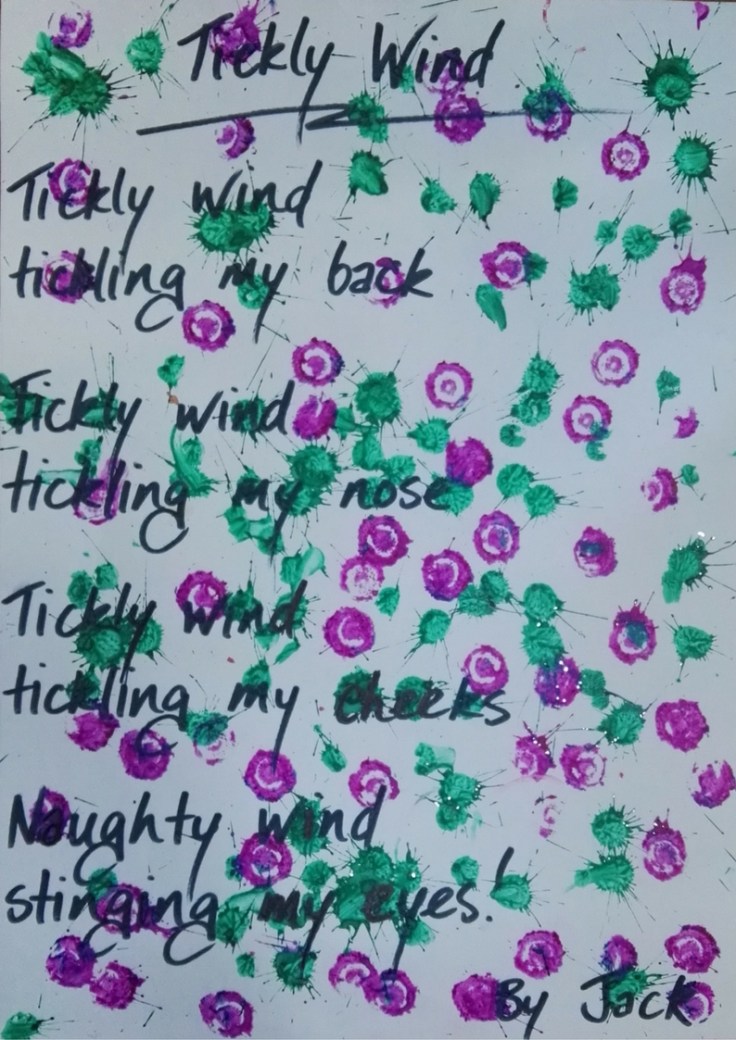 Tickly Wind
Tickly wind
tickling my back
Tickly wind
tickling my nose
Tickly wind
tickling my cheeks
Naughty wind
stinging my eyes!
By Jack